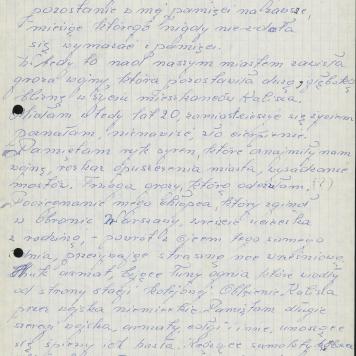 pozostanie w mej pamięci na zawsze,
miesiąc którego nigdy nie zdoła
się wymazać z pamięci.
Wtedy to nad naszym miastem zawisła
groza wojny, która pozostawiła dużą, głęboką
bliznę w życiu mieszkańców Kalisza.
Miałam wtedy lat 20, zamiast cieszyć się życiem
poznałam, nienawiść, zło cierpienie.
Pamiętam ryk syren, które oznajmiły nam
wojnę, rozkaz opuszczenia miasta, wysadzanie
mostów. I mogą grozy, które odczułam. (?)
Pożegnanie mego chłopca, który zginął
w obronie Warszawy, wreszcie ucieczka
z rodziną, - powrót z ojcem tego samego
dnia, przeżywając straszną noc wrześniową,
Huk armat, bijące łuny ognia które widać
od strony stacji kolejowej. Oblężenie Kalisza
przez wojska niemieckie. Pamiętam długie
szeregi wojska, armaty, czołgi - i inne, unoszące
się śpiewy ich hasła. Krążące samoloty